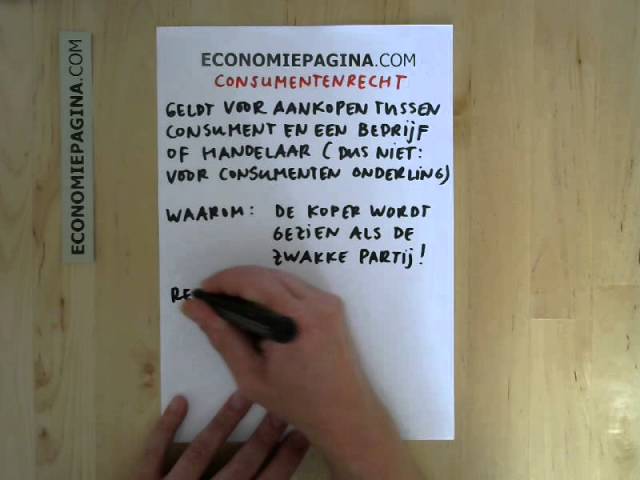 ECONOMIEPAGINA.COM
ECONOMIEPAGINA.COM
CONSUMENTENRECHT
GELDT VOOR AANKOPEN TUSSEN
CONSUMENT EN EEN BEDRIJF
OF HANDELAAR (DUS NIET:
VOOR CONSUMENTEN ONDERLING)
WAAROM: DE KOPER WORDT
GEZIEN ALS DE
ZWAKKE PARTIJ!
RE